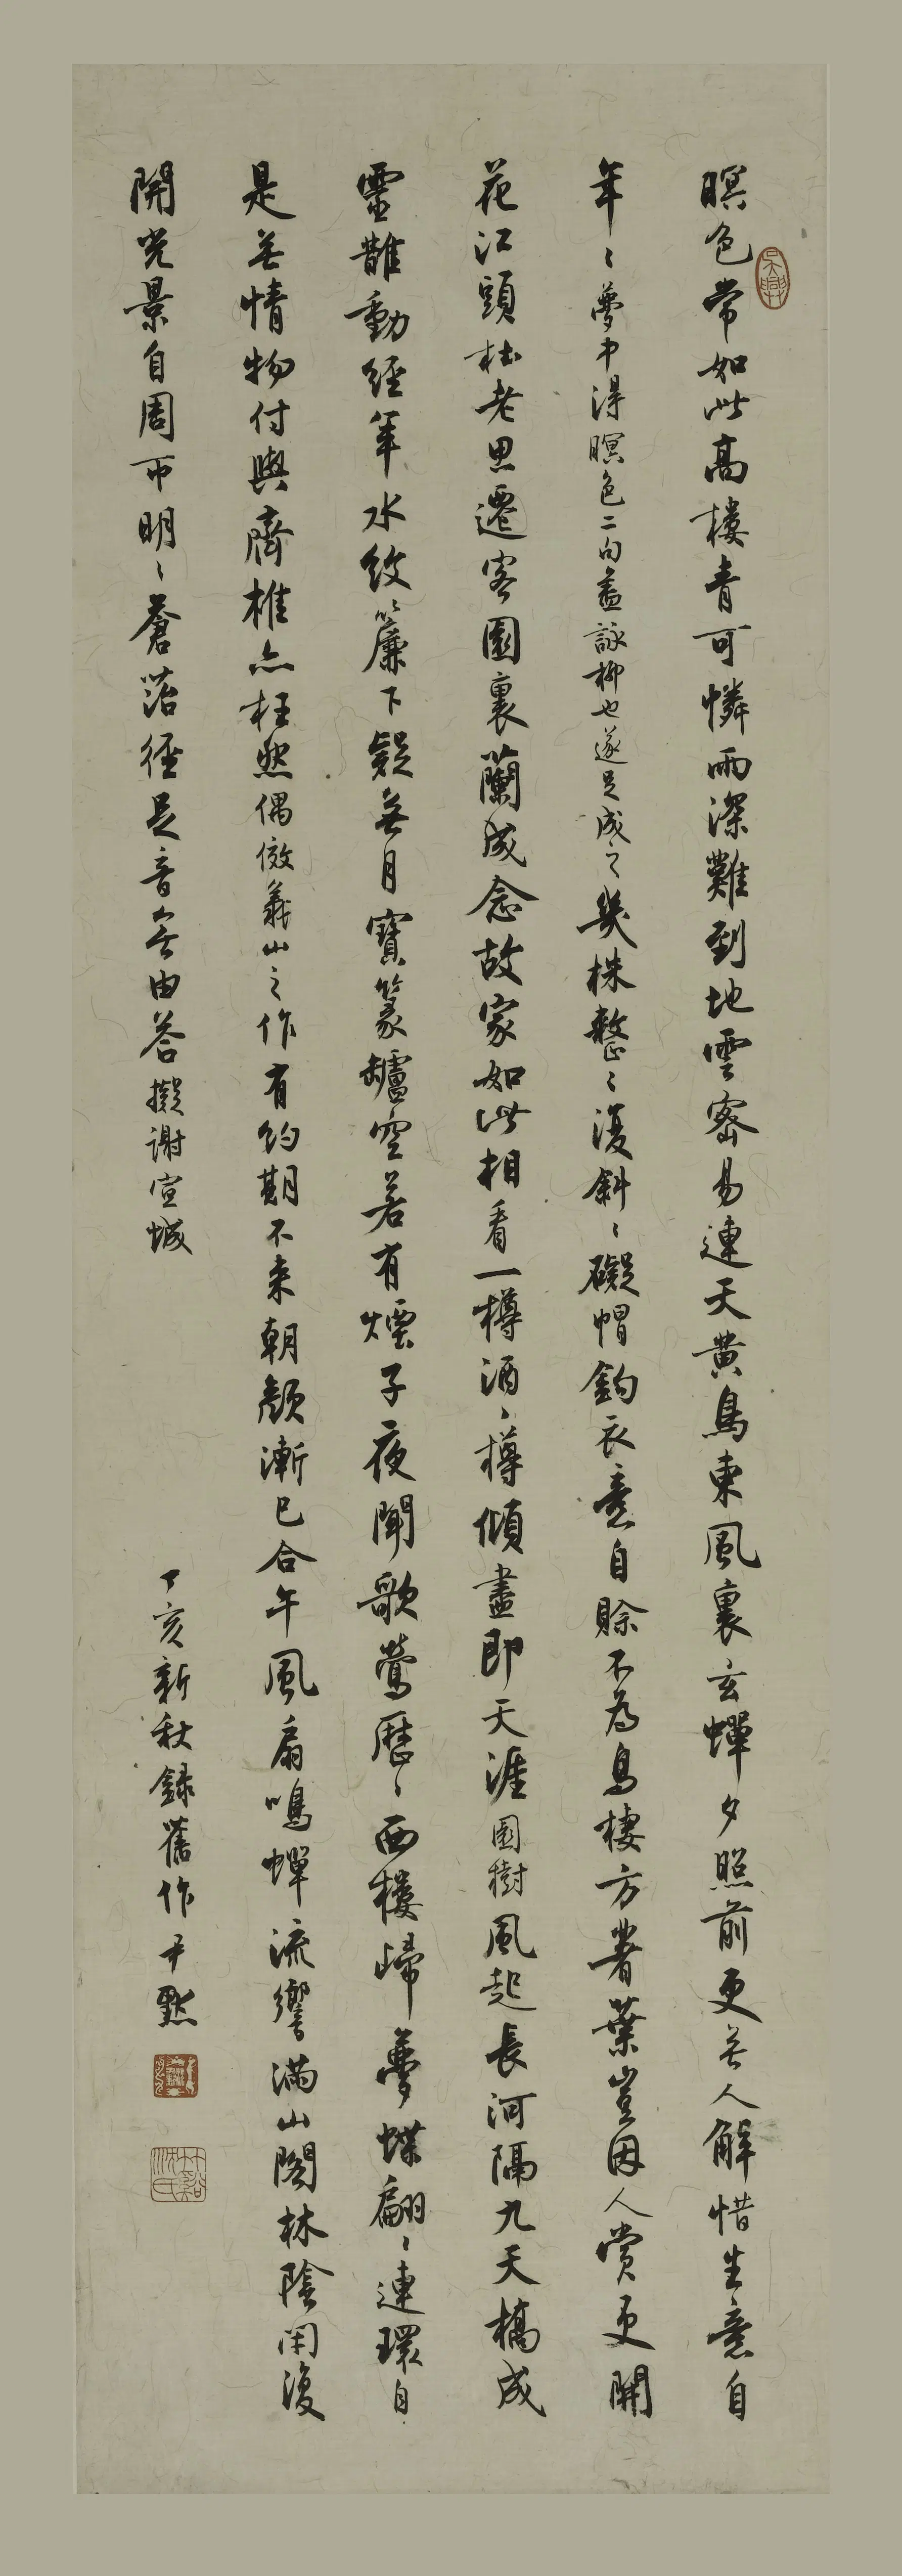 暝色常如此高樓青可憐雨深難到地雲密易連天黄鳥東風裏玄蟬夕照前更無人解惜生意自
年〻夢中得暝色二句蓋詠柳也遂足成之幾株整〻復斜〻礙帽鈎衣意自賒不為鳥棲方著葉豈因人賞更開
花江頭杜老思遷客園裏蘭成念故家如此相看一樽酒〻樽傾盡即天涯園樹風起長河隔九天橋成
靈鵲動經年水紋簾下疑無月寶篆罏空若有煙子夜聞歌鶯歷〻西樓歸夢蝶翩〻連環自
是無情物付與齊椎亦枉然偶傚義山之作有約期不来朝顏漸已合午風扇鳴蟬流響滿山閣林陰閑復
開光景自周帀明〻蒼落徑足音無由荅擬謝宣城
丁亥新秋録舊作尹默
吳興
竹谿沈氏